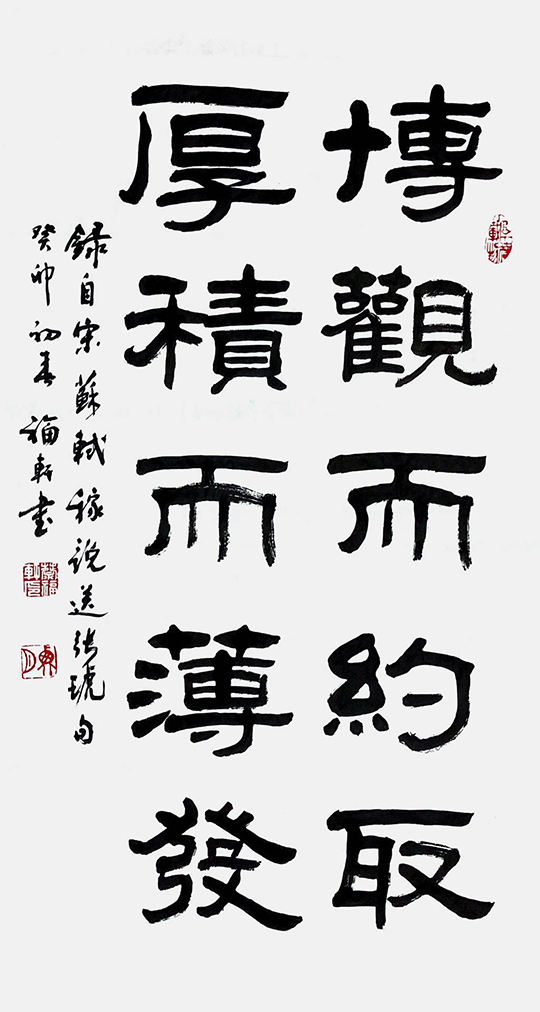 博觀而約取
厚積而薄發
録自宋蘇軾稼説送張琥句
癸卯初春福軒書